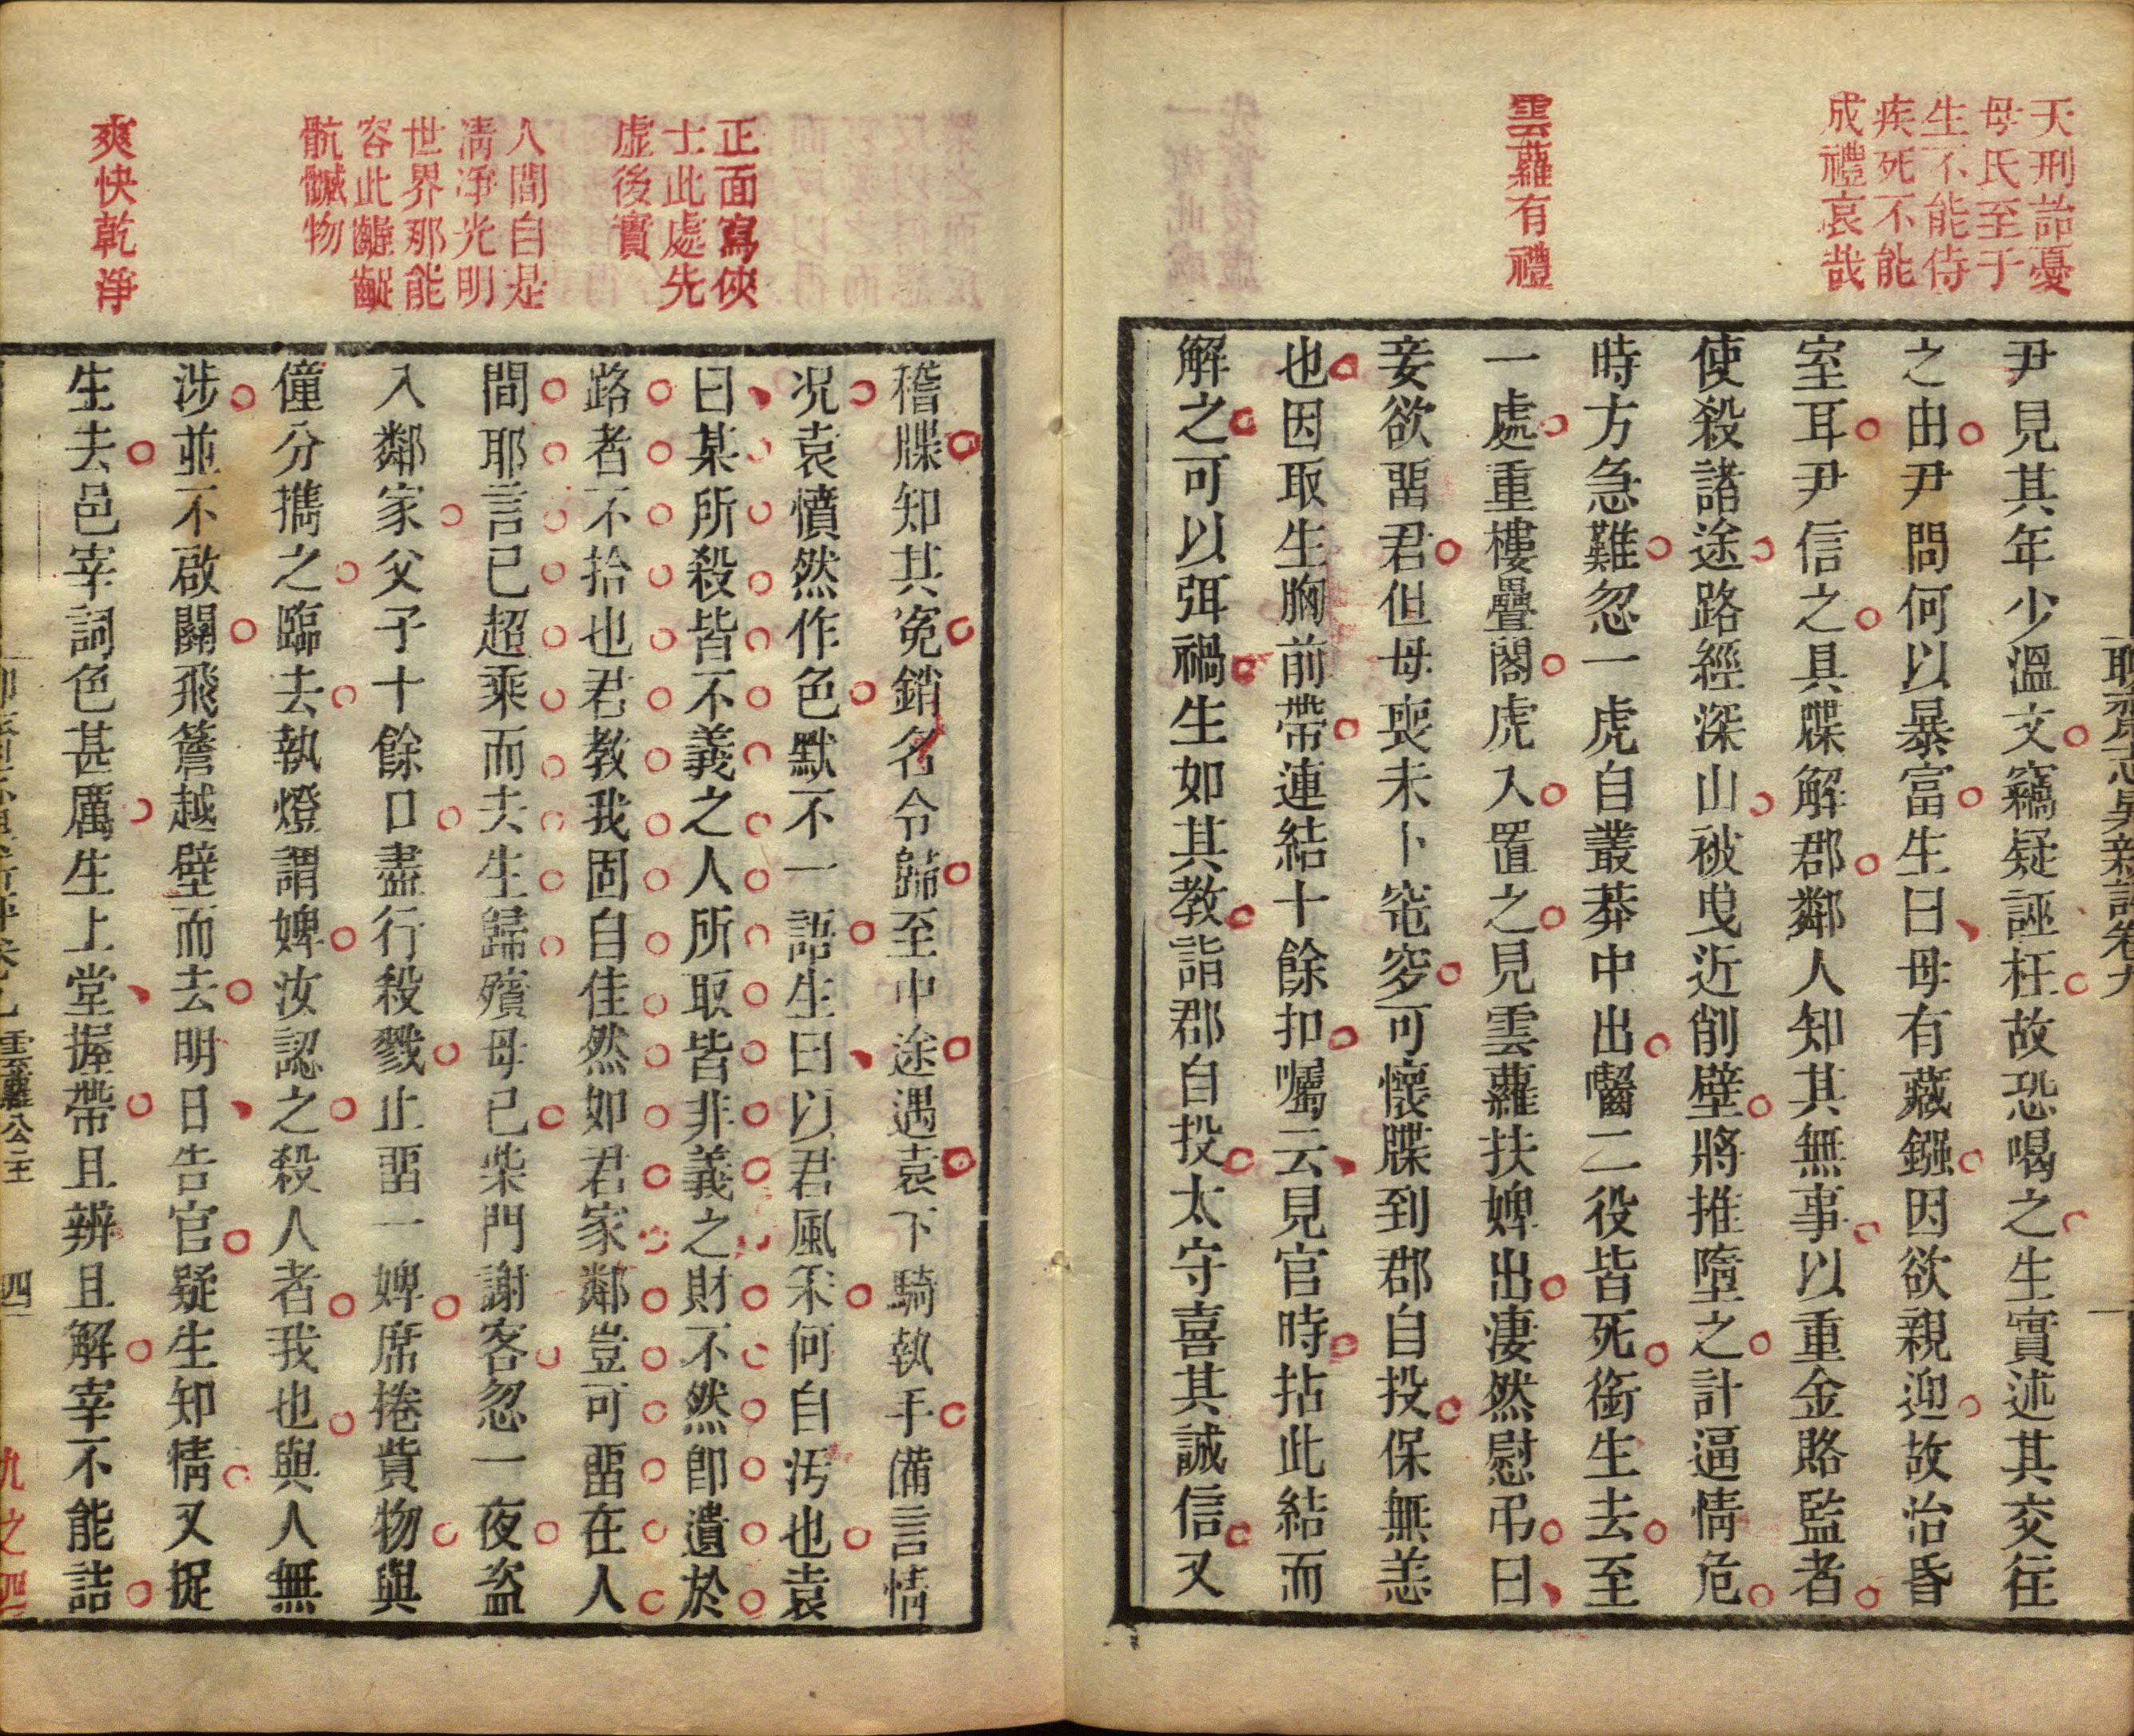 天刑詒憂
母氏至于
生不能侍
疾死不能
成禮哀哉
雲蘿有禮
尹見其年少溫文竊疑誣枉故恐喝之生實述其交往
之由尹問何以暴富生曰母有藏鏹因欲親迎故治昏
室耳尹信之具牒解郡鄰人知其無事以重金賂監者
使殺諸途路經深山被曳近削壁將推墮之計逼情危
時方急難忽一虎自叢莽中出嚙二役皆死銜生去至
一處重樓疊閣虎入置之見雲蘿扶婢出淒然慰弔曰
妾欲畱君但母喪未卜窀穸可懷牒到郡自投保無恙
也因取生胸前帶連結十餘扣囑云見官時拈此結而
解之可以弭禍生如其教詣郡自投太守喜其誠信又
正面寫俠
士此處先
虛後實
人間自是
清淨光明
世界那能
容此齷齪
骯髒物
爽快乾淨
稽牒知其冤銷名令歸至中途遇袁下騎執手備言情
況袁憤然作色默不一語生曰以君風采何自汚也袁
曰某所殺皆不義之人所取皆非義之財不然卽遺於
路者不拾也君教我固自佳然如君家鄰豈可畱在人
間耶言已超乘而去生歸殯母已柴門謝客忽一夜盜
入鄰家父子十餘口盡行殺戮止畱一婢席捲貲物與
僮分攜之臨去執燈謂婢汝認之殺人者我也與人無
涉並不啟關飛簷越壁而去明日告官疑生知情又捉
生去邑宰詞色甚厲生上堂握帶且辨且解宰不能詰
雲蘿公主
四
九之四